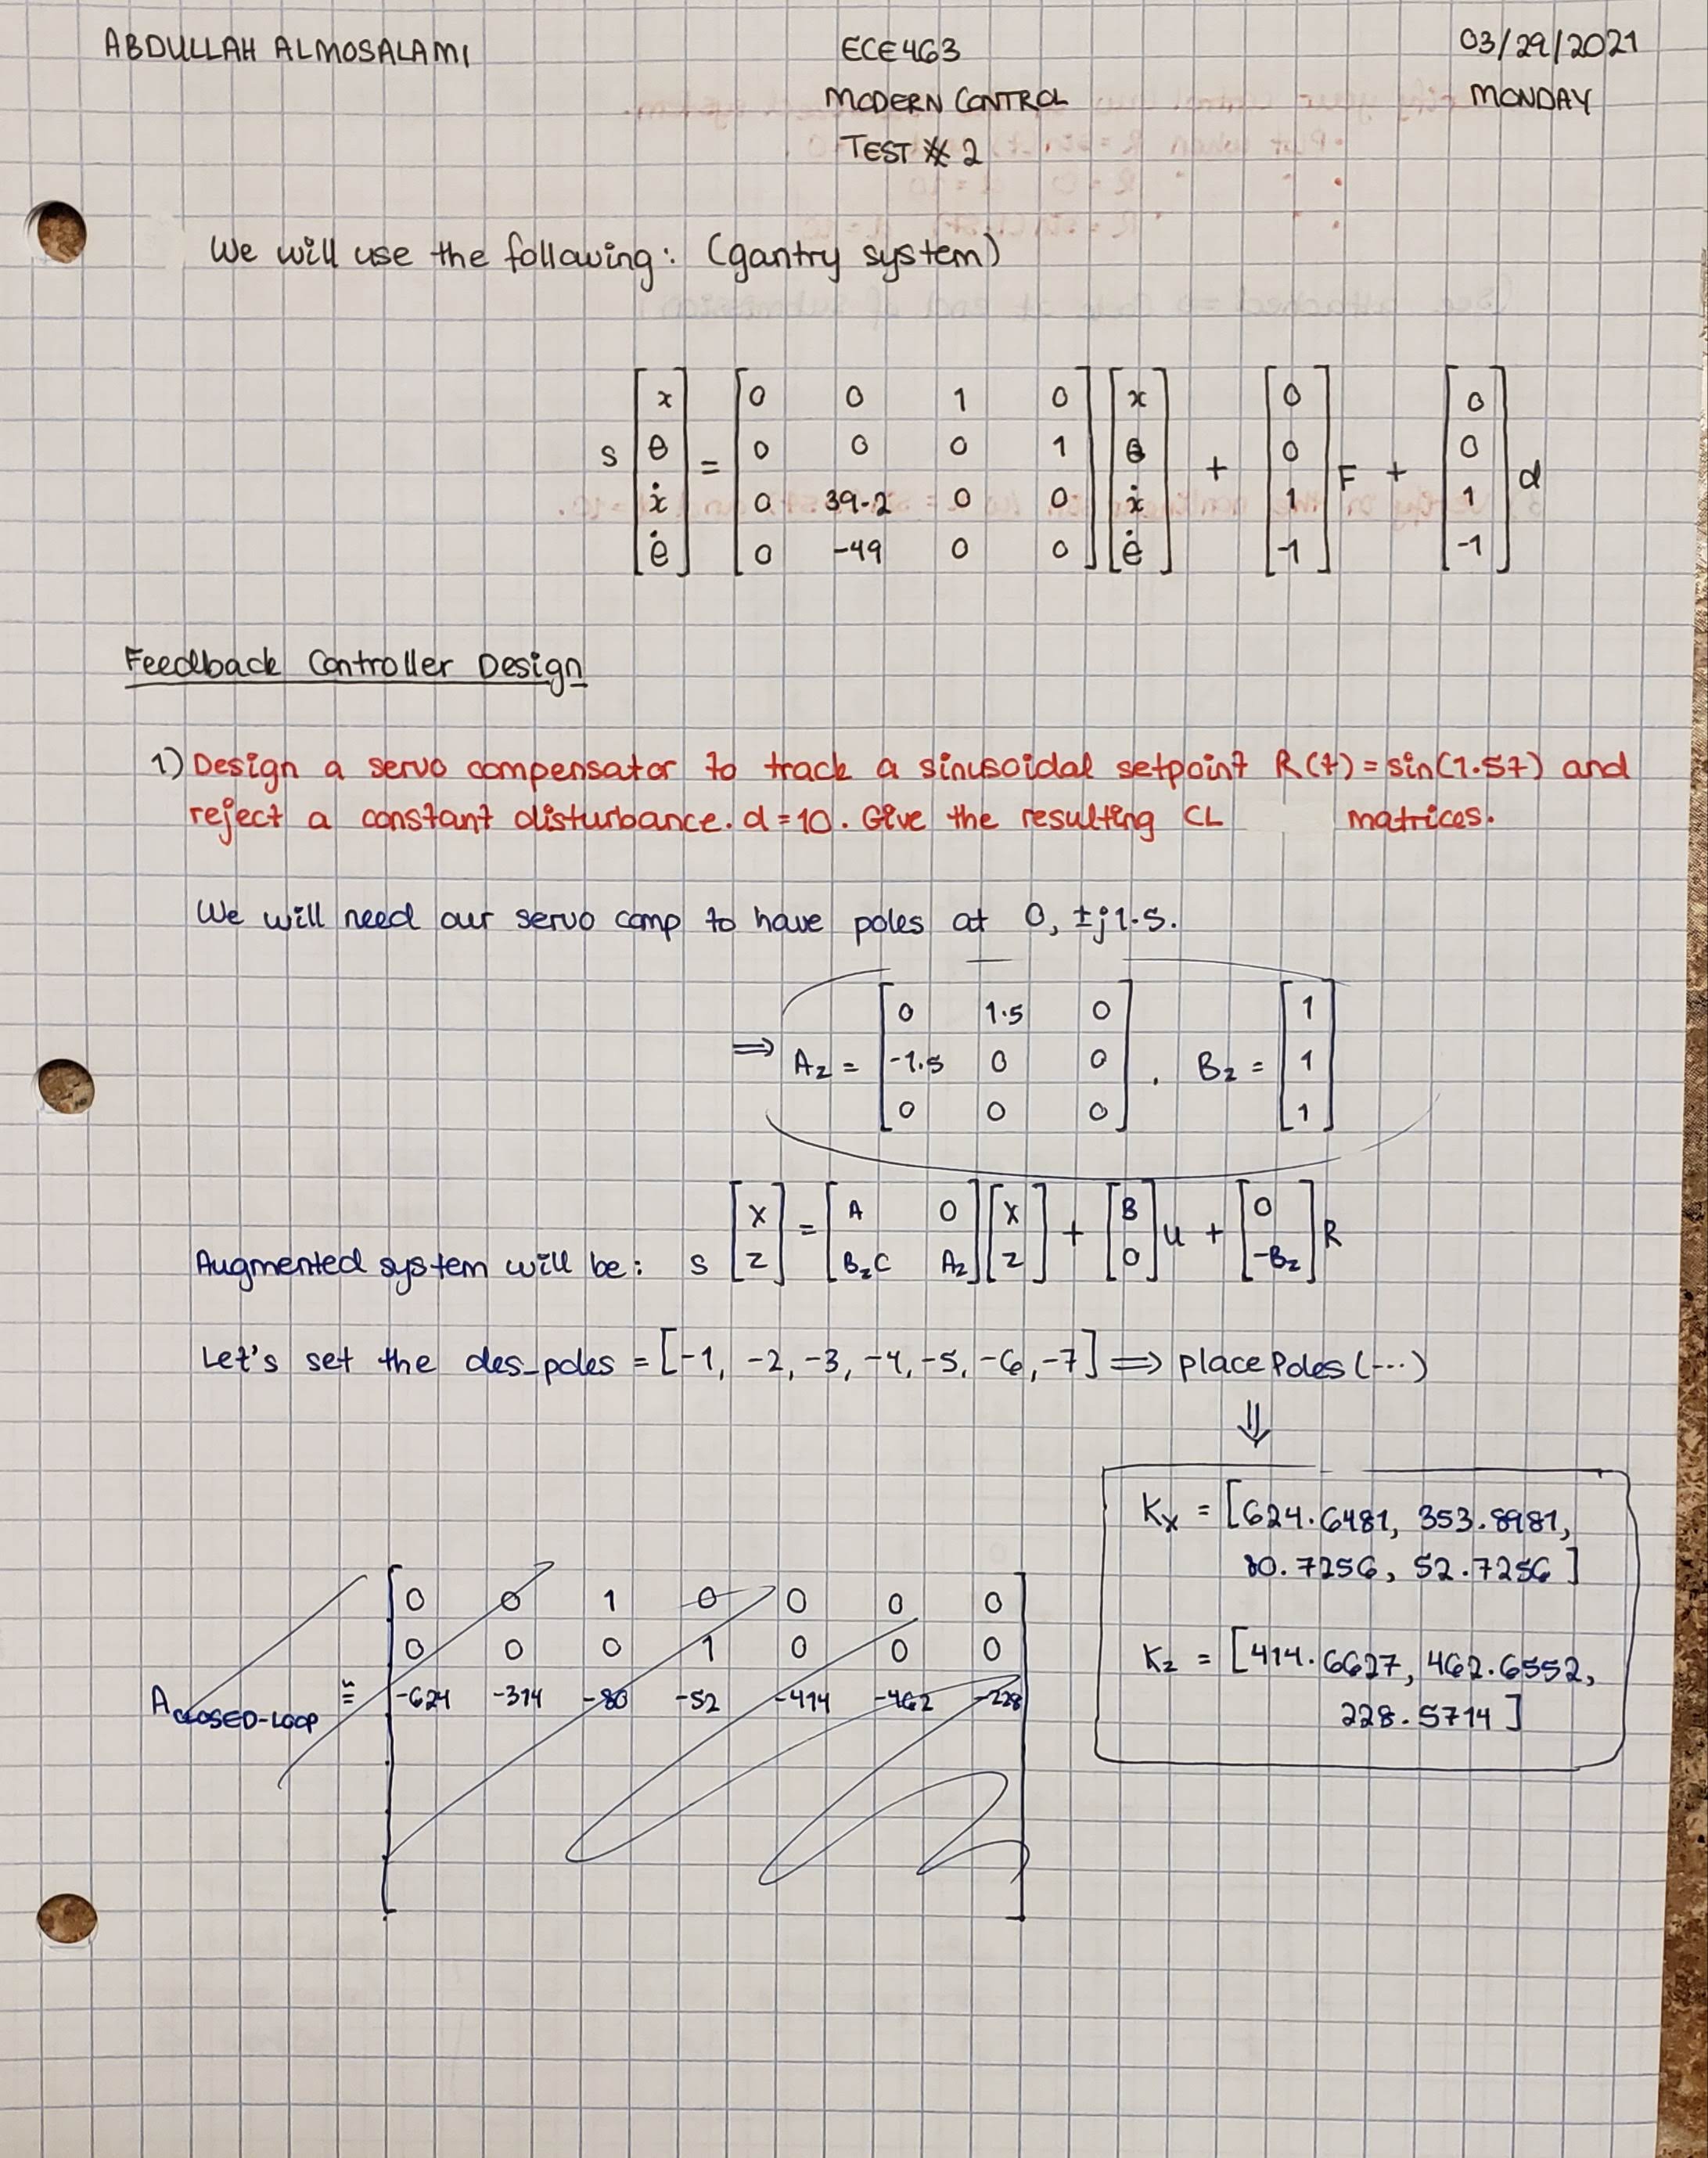 ABDULLAH ALMOSALAMI
ECE463
03/29/2021
MODERN CONTROL
MONDAY
TEST # 2
We will use the following: (gantry system)
s [x θ ẋ θ̇] = [0 0 1 0; 0 0 0 1; 0 39.2 0 0; 0 -49 0 0] [x θ ẋ θ̇] + [0 0 1 -1] F + [0 0 1 -1] d
Feedback Controller Design
1) Design a servo compensator to track a sinusoidal setpoint R(t) = sin(1.5t) and
reject a constant disturbance. d = 10. Give the resulting CL matrices.
We will need our servo comp to have poles at 0, ±j1.5.
⇒ Az = [0 1.5 0; -1.5 0 0; 0 0 0], Bz = [1 1 1]
Augmented system will be: s [X Z] = [A 0; BzC Az] [X Z] + [B 0] u + [0 -Bz] R
Let's set the des_poles = [-1, -2, -3, -4, -5, -6, -7] ⇒ placePoles(...)
⇓
Kx = [624.6481, 353.8981,
80.7256, 52.7256]
Kz = [414.6627, 462.6552,
228.5714]
A CLOSED-LOOP = [0 0 1 0 0 0 0
0 0 0 1 0 0 0
-624 -314 -80 -52 -414 -462 -228]